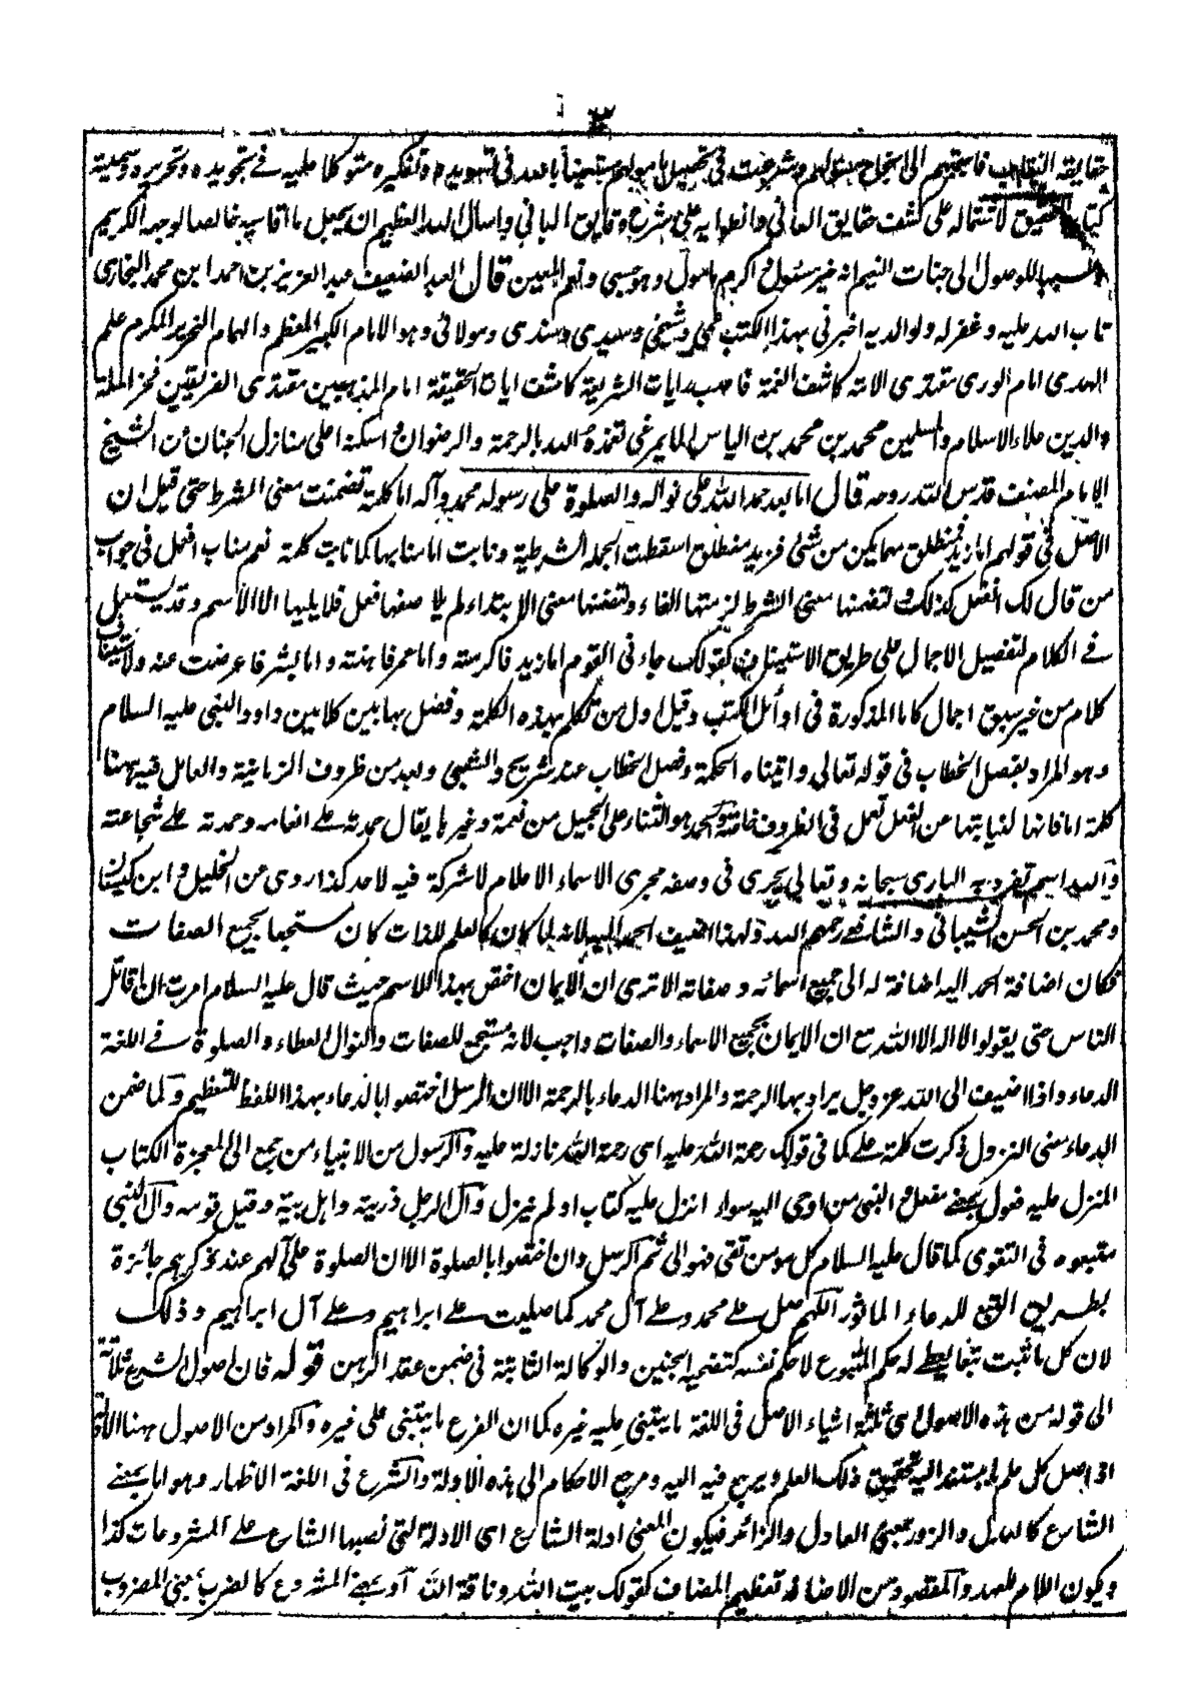 ٣
حقايقه النقاب فاجبتهم الى انجاح وشرعت فى تحصيل مستعينا بالله فى تمهيده وتفكيره متوكلا عليه فے تجويده وتحريره وسميته
كتاب التحقيق لاشتماله على كشف حقايق المعانى وانطوايه على شرح دقايق المبانى واسال الله العظيم ان يجعل ما اقاسيه خالصا لوجهه الكريم
للوصول الى جنات النعيم انه خير مسئول و اكرم مامول وهو حسبى ونعم المعين قال العبد الضعيف عبد العزيز بن احمد ابن محمد البخارى
تاب الله عليه وغفر له ولوالديه اخبرنى بهذا الكتب عمى وشيخى وسيدى وسندى ومولائى وهو الامام الكبير المعظم والهمام النحرير المكرم علم
الهدى امام الورى مقتدى الامة كاشف الغمة ناصب رايات الشريعة كاشف ايات الحقيقة امام المذهبين مقتدى الفريقين فخر الملة
والدين علاء الاسلام والمسلمين محمد بن محمد بن الياس المايمرغى تغمذه الله بالرحمة والرضوان و اسكنه اعلى منازل الجنان عن الشيخ
الامام المصنف قدس الله روحه قال اما بعد حمد الله على نواله والصلوة على رسوله محمد وآله اما كلمة تضمنت معنى الشرط حتى قيل ان
الاصل فى قولهم اما زيد فمنطلق مهما يكن من شئ فزيد منطلق اسقطت الجملة الشرطية ونابت اما منابها كما نابت كلمة نعم مناب افعل فى جواب
من قال لك افعل كذلك و لتضمنها معنى الشرط لزمتها الفاء ولتضمنها معنى الابتداء لم يلا صقها فعل فلا يليها الا الاسم وقد يستعمل
فے الكلام لتفصيل الاجمال على طريق الاستيناف كقولك جاء نى القوم اما زيد فاكرمته واما عمر فاهنته واما بشر فاعرضت عنه ولاستيناف
كلام من غير سبق اجمال كاما المذكورة فى اوائل الكتب وقيل اول من تكلم بهذه الكلمة وفصل بها بين كلامين داود النبى عليه السلام
وهو المراد بفصل الخطاب فى قوله تعالى واتيناه الحكمة وفصل الخطاب عند شريح والشعبى وبعد من ظروف الزمانية والعامل فيه ههنا
كلمة اما فانها لنيابتها عن الفعل تعمل فى الظروف خاصة والحمد هو الثناء على الجميل من نعمة وغيرها يقال حمدته علے انعامه وحمدته علے شجاعته
والله اسم تفرد به البارى سبحانه وتعالى يجرى فى وصفه مجرى الاسماء الاعلام لا شركة فيه لاحد كذا روى عن الخليل و ابن كيسان
ومحمد بن الحسن الشيبانى والشافعے رحمهم الله ولهذا اضيف الحمد اليه لانه لما كان كالعلم للذات كان مستجمعا لجميع الصفات
فكان اضافة الحمد اليه اضافة له الى جميع اسمائه وصفاته الاترى ان الايمان اختص بهذا الاسم حيث قال عليه السلام امرت ان اقاتل
الناس حتى يقولوا لا اله الا الله مع ان الايمان بجميع الاسماء والصفات واجب لانه مستجمع للصفات والنوال العطاء والصلوة فے اللغة
الدعاء واذا اضيف الى الله عز وجل يراد بها الرحمة والمراد ههنا الدعاء بالرحمة الا ان الرسل اختصوا بالدعاء بهذا اللفظ للتعظيم ولما ضمن
الدعاء معنى النزول ذكرت كلمة علے كما فى قولك رحمة الله عليه اى رحمة الله نازلة عليه والرسول من الانبياء من جمع الى المعجزة الكتاب
المنزل عليه فعول بمعنے مفعل و النبى من اوحى اليه سواء انزل عليه كتاب او لم ينزل وآل الرجل ذريته واهل بيته وقيل قومه وآل النبى
متبعوه فى التقوى كما قال عليه السلام كل مومن تقى فهو الى ثم الرسل وان اختصوا بالصلوة الا ان الصلوة على آلهم عند ذكرهم جائزة
بطريق التبع للدعاء الماثور اللهم صل علے محمد وعلے آل محمد كما صليت علے ابراهيم وعلے آل ابراهيم وذلك
لان كل ما ثبت تبعا يعطے له حكم المتبوع لا حكم نفسه كتضحية الجنين والوكالة الثابتة فى ضمن عقد الرهن قوله فان اصول الشرع ثلاثة
الى قوله من هذه الاصول اى ثلثة اشياء الاصل فى اللغة ما يبتنى عليه غيره كما ان الفرع ما يبتنى على غيره والمراد من الاصول ههنا الادلة
اذ اصل كل علم ما يستند اليه تحقيق ذلك العلم ويرجع فيه اليه ومرجع الاحكام الى هذه الادلة والشرع فى اللغة الاظهار وهو اما بمعنے
الشارع كالعدل والزور بمعنى العادل والزائر فيكون المعنى ادلة الشارع اى الادلة التى نصبها الشارع علے المشروعات كذا
ويكون اللام للعهد والمقصود من الاضافة تعظيم المضاف كقولك بيت الله وناقة الله او بمعنے المشروع كالضرب بمعنى المضروب